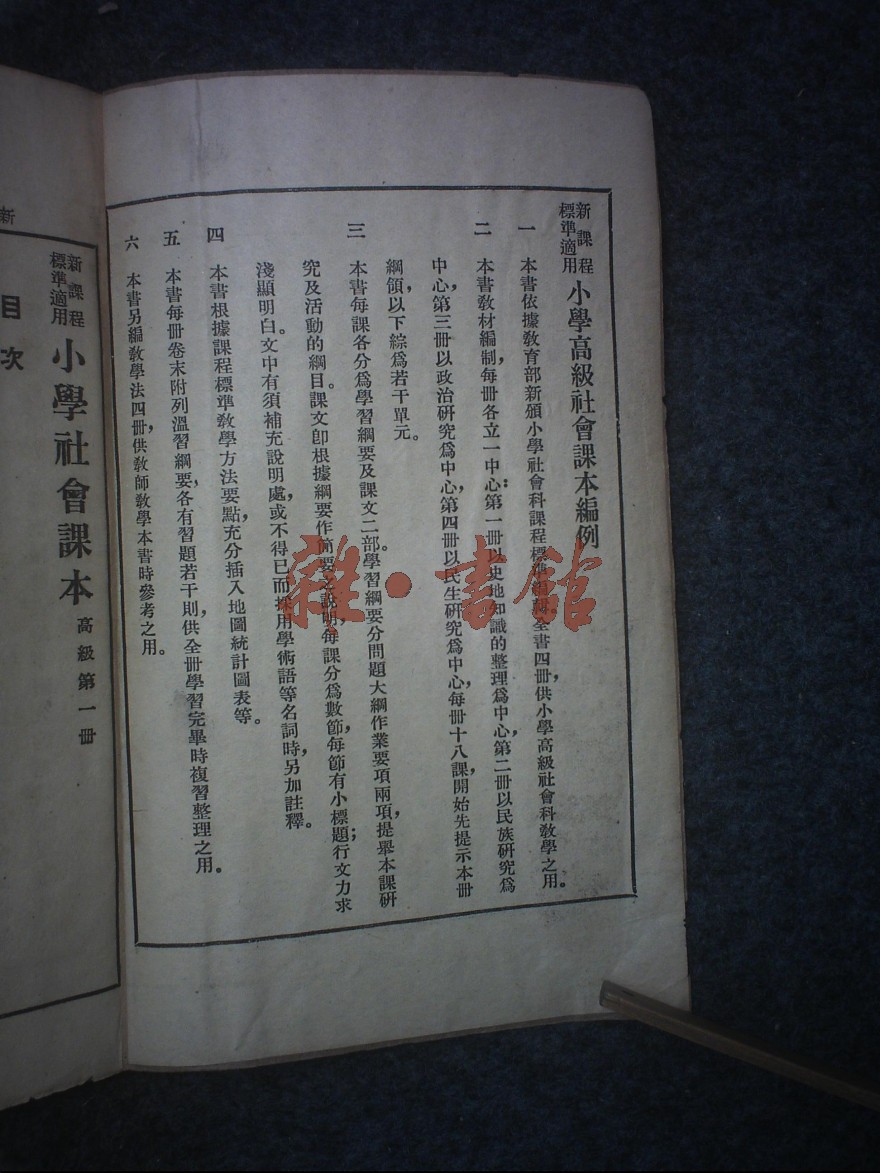 新課程標準適用 小學高級社會課本編例
一 本書依據教育部新頒小學社會科課程標準編輯全書四冊，供小學高級社會科教學之用。
二 本書教材編制，每冊各立一中心：第一冊以史地知識的整理爲中心，第二冊以民族研究爲
中心，第三冊以政治研究爲中心，第四冊以民生研究爲中心，每冊十八課，開始先提示本冊
綱領，以下綜爲若干單元。
三 本書每課各分爲學習綱要及課文二部。學習綱要分問題大綱作業要項兩項，提舉本課研
究及活動的綱目。課文卽根據綱要作簡要之說明，每課分爲數節，每節有小標題，行文力求
淺顯明白。文中有須補充說明處，或不得已而採用學術語等名詞時，另加註釋。
四 本書根據課程標準教學方法要點，充分插入地圖統計圖表等。
五 本書每冊卷末附列溫習綱要，各有習題若干則，供全冊學習完畢時複習整理之用。
六 本書另編教學法四冊，供教師教學本書時參考之用。
新課程標準適用 小學社會課本 高級第一冊
目次
新
雜·書館